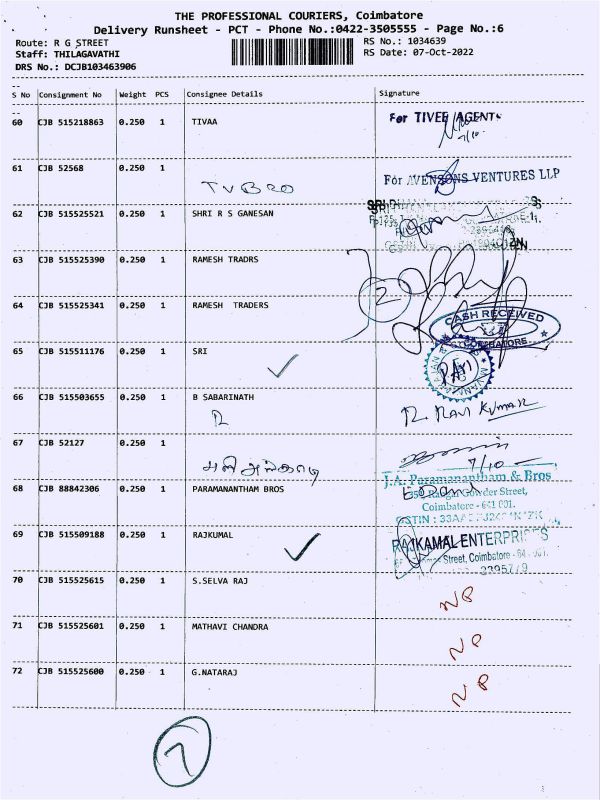 THE PROFESSIONAL COURIERS, Coimbatore
Delivery Runsheet - PCT - Phone No.:0422-3505555 - Page No.:6
Route: R G STREET
Staff: THILAGAVATHI
DRS No.: DCJB103463906
RS No.: 1034639
RS Date: 07-Oct-2022
S No Consignment No Weight PCS Consignee Details Signature
60 CJB 515218863 0.250 1 TIVAA
For TIVEE AGENT
7/10
61 CJB 52568 0.250 1
For AVENSONS VENTURES LLP
62 CJB 515525521 0.250 1 SHRI R S GANESAN
63 CJB 515525390 0.250 1 RAMESH TRADRS
2
64 CJB 515525341 0.250 1 RAMESH TRADERS
CASH RECEIVED
COIMBATORE
65 CJB 515511176 0.250 1 SRI
RAVI
66 CJB 515503655 0.250 1 B SABARINATH
R
R. RAVI KUMAR
67 CJB 52127 0.250 1
7/10
68 CJB 88842306 0.250 1 PARAMANANTHAM BROS
J.A. Paramanantham & Bros
Street,
Coimbatore - 641 001.
69 CJB 515509188 0.250 1 RAJKUMAL
RAJKAMAL ENTERPRISES
Street, Coimbatore - 64
70 CJB 515525615 0.250 1 S.SELVA RAJ
NP
71 CJB 515525601 0.250 1 MATHAVI CHANDRA
NP
72 CJB 515525600 0.250 1 G.NATARAJ
NP
7